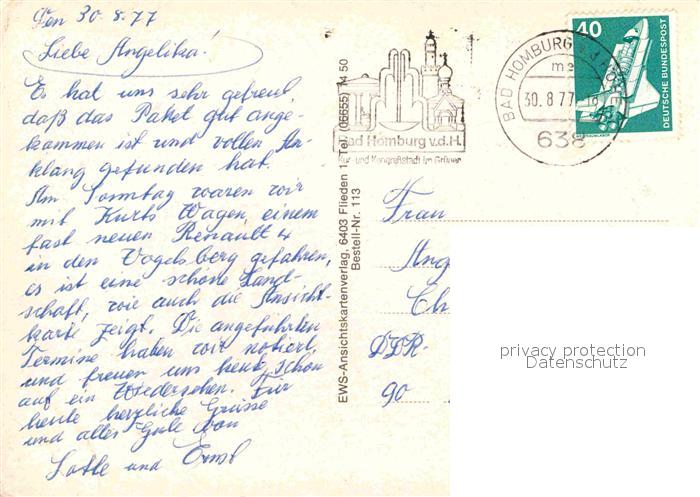 Den 30.8.77
Liebe Angelika!
Es hat uns sehr gefreut,
daß das Paket gut ange-
kommen ist und vollen An-
klang gefunden hat.
Am Sonntag waren wir
mit Kurts Wagen, einem
fast neuen Renault 4
in den Vogelsberg gefahren,
es ist eine schöne Land-
schaft, wie auch die Ansicht-
karte zeigt. Die angeführten
Termine haben wir notiert
und freuen uns heute schon
auf ein Wiedersehen. Für
heute herzliche Grüsse
und alles Gute von
Lotte und Ernst
EWS-Ansichtskartenverlag, 6403 Flieden 1, Tel. (06655) 14 50
Bestell-Nr. 113
Bad Homburg v.d.H.
Kur- und Kongreßstadt im Grünen
BAD HOMBURG v.d.HÖHE 1
me
30.8.77
638
40
DEUTSCHE BUNDESPOST
Frau
Ang
Ch
DDR-
90
privacy protection
Datenschutz